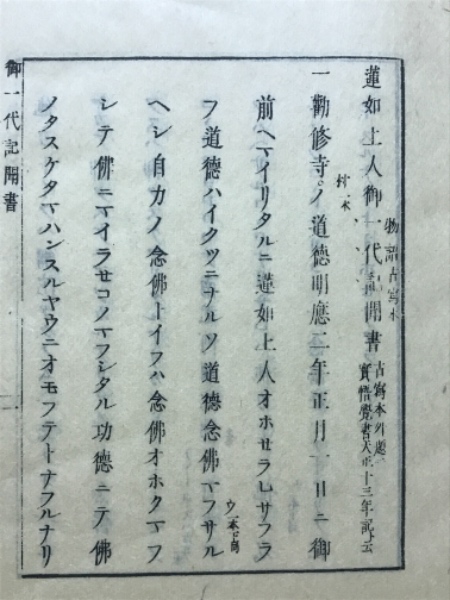 蓮如上人御一代記聞書 古寫本外題ニ
實悟覺書天正十三年記ト云
物語古寫本
一勸修寺ノ道德明應二年正月一日ニ御
前ヘマイリタルニ蓮如上人オホセラレサフラ
フ道德ハイクツニナルソ道德念佛マフサル
ヘシ自力ノ念佛トイフハ念佛オホクマフ
シテ佛ニマイラセコノマフシタル功德ニテ佛
ノタスケタマハンスルヤウニオモフテトナフルナリ
御一代記聞書
一